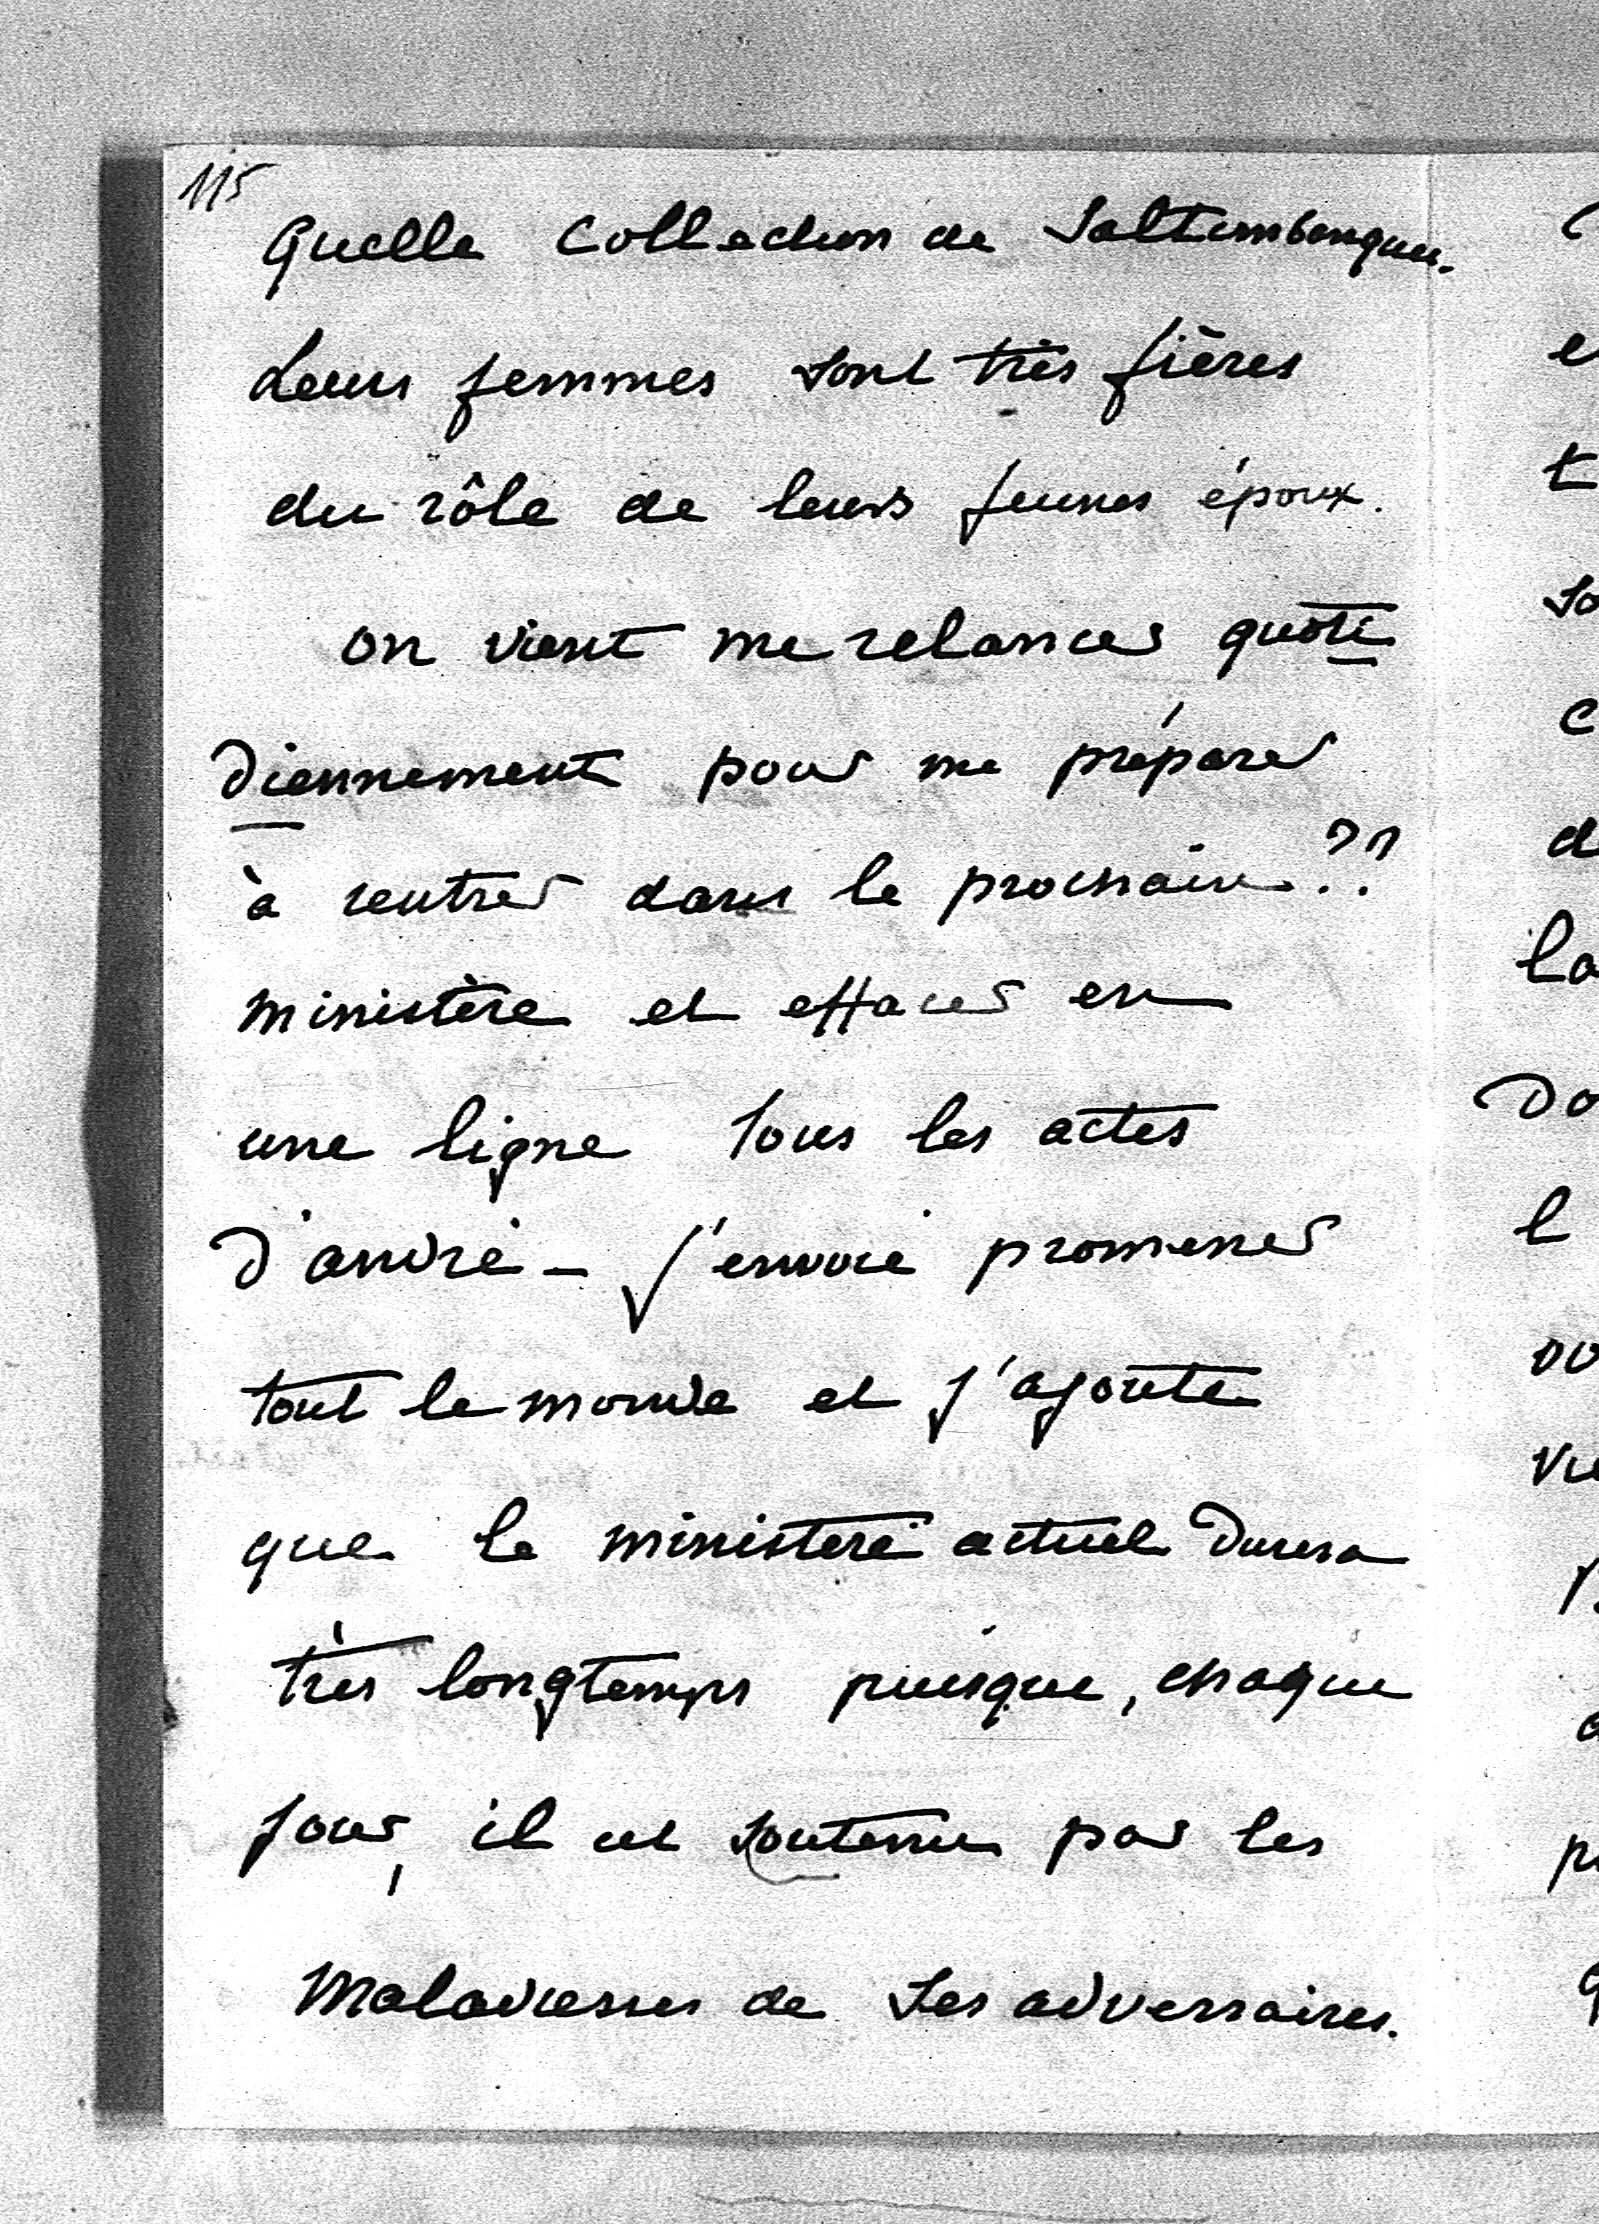 115
Quelle collection de Saltimbanques.
Leurs femmes sont très fières
du rôle de leurs jeunes époux.
on vient me relancer quoti
diennement pour me préparer
à rentrer dans le prochain ??
ministère et effacer en
une ligne tous les actes
d'andré - J'envoie promener
tout le monde et j'ajoute
que le ministère actuel durera
très longtemps puisque, chaque
jour, il est soutenu par les
maladresses de ses adversaires.